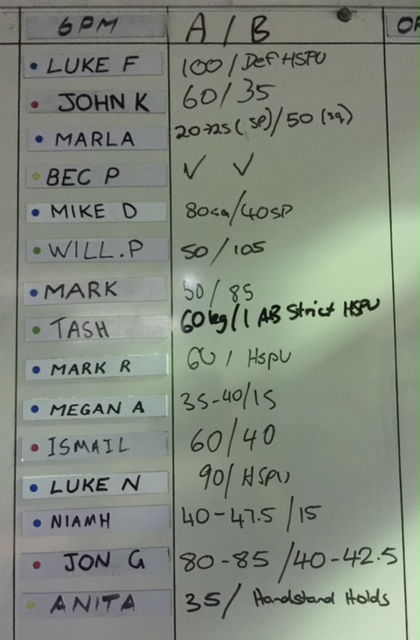 6PM A / B OR
LUKE F 100 / Def HSPU
JOHN K 60 / 35
MARLA 20-725 ( SP) / 50 (sq)
BEC P ✓ ✓
MIKE D 80sq/40SP
WILL.P 50 / 105
MARK 50 / 85
TASH 60kg / 1 AB Strict HSPU
MARK R 60 / HSPU
MEGAN A 35-40/15
ISMAIL 60/40
LUKE N 90/ HSPU
NIAMH 40-47.5 / 15
JON G 80-85 /40-42.5
ANITA 35/ Handstand Holds